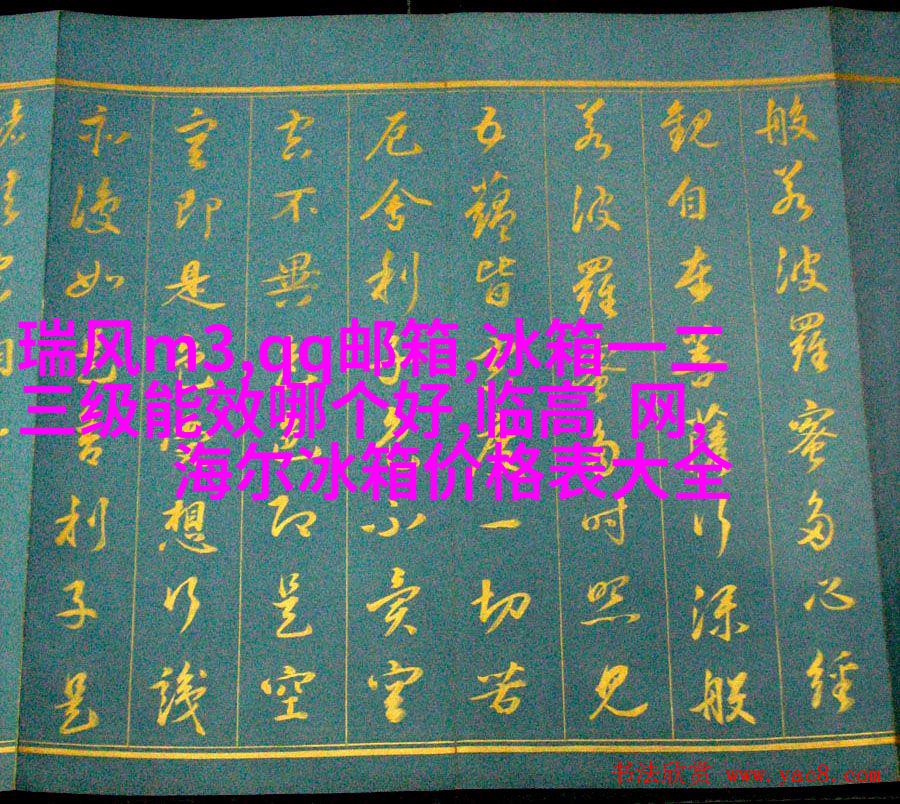 般若波羅蜜多心經
觀自在菩薩行深般
若波羅蜜多時照見
五蘊皆空度一切苦
厄舍利子色不異空
空不異色色即是空
空即是色受想行識
亦復如是舍利子是
瑞风m3,qq邮箱,冰箱一二
三级能效哪个好,临高 网,
海尔冰箱价格表大全
书法欣赏 www.yac8.com